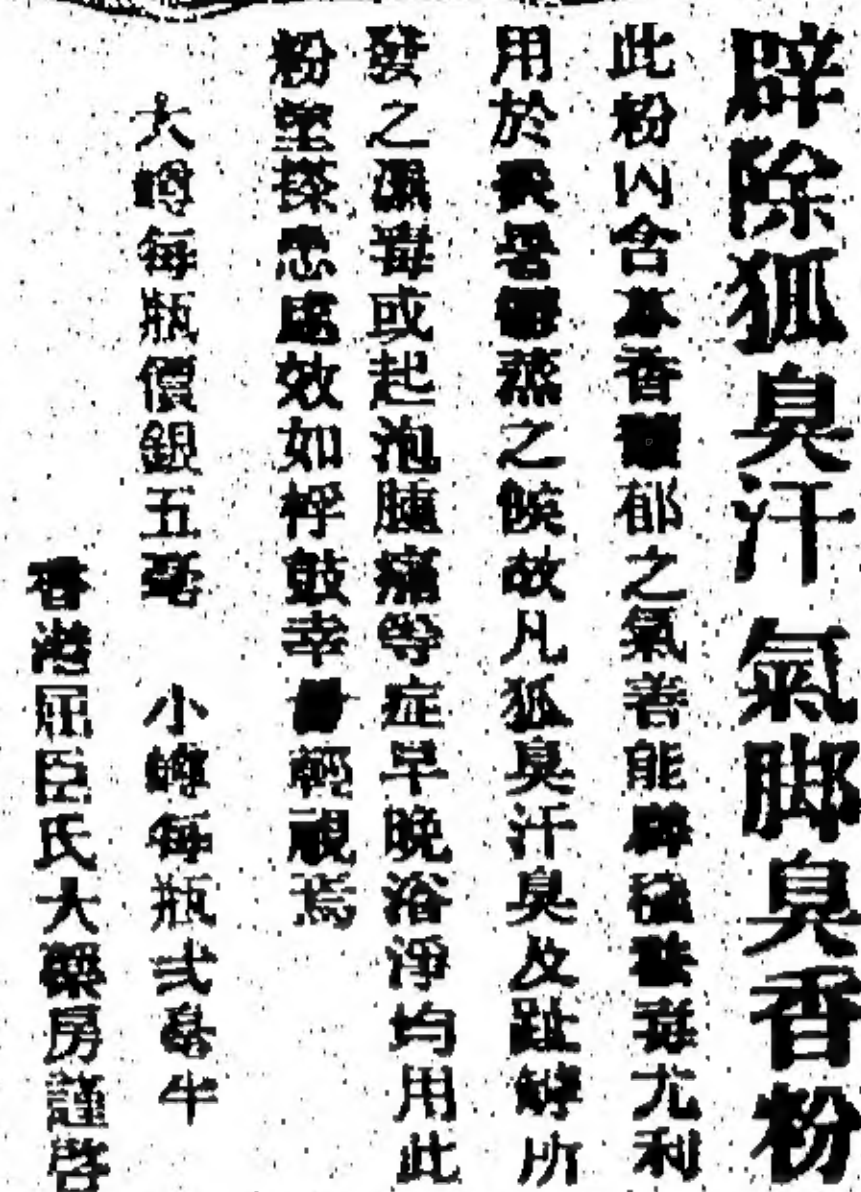 辟除狐臭汗氣脚臭香粉
此粉內含香郁之氣善能辟穢毒尤利
用於暑蒸之候故凡狐臭汗臭及趾罅所
發之濕毒或起泡腫痛等症早晚浴淨均用此
粉搽患處效如桴鼓幸輕視焉
大罇每瓶價銀五毫 小罇每瓶弍毫半
香港屈臣氏大藥房謹啓